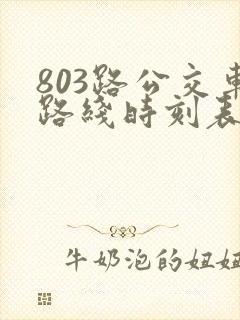 803路公交车
路线时刻表
牛奶泡的妞妞